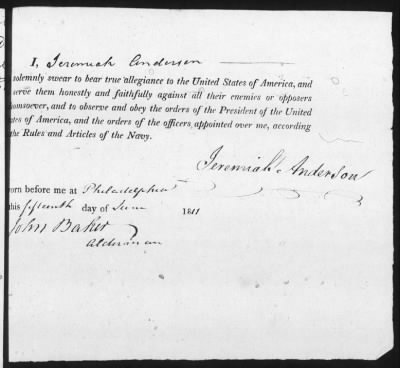 I, Jeremiah Anderson
solemnly swear to bear true allegiance to the United States of America, and
serve them honestly and faithfully against all their enemies or opposers
omsoever, and to observe and obey the orders of the President of the United
tes of America, and the orders of the officers appointed over me, according
the Rules and Articles of the Navy.
Jeremiah Anderson
orn before me at Philadelphia
this fifteenth day of June 1811
John Baker
Alderman